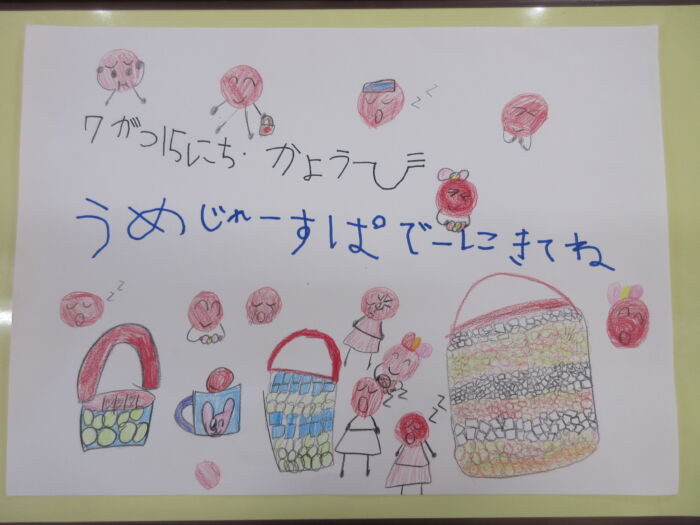 7がつ15にち・かようび
うめじゅーすぱーでーにきてね